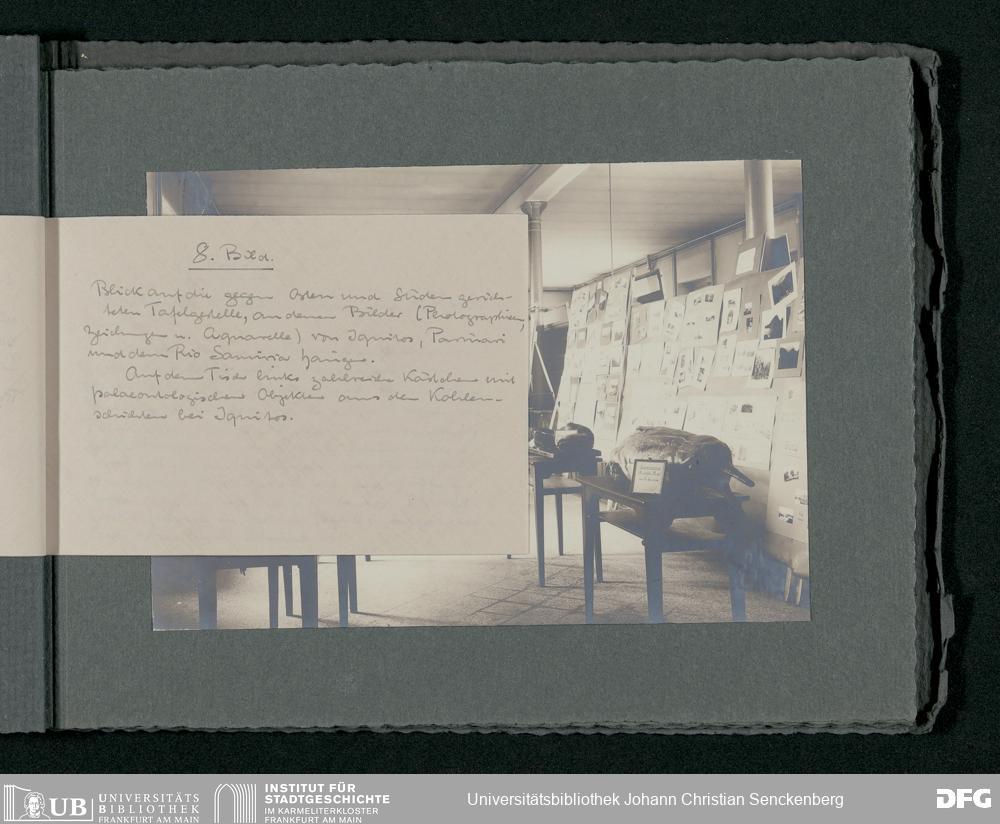 8. Bild.
Blick auf die gegen Osten und Süden gerich-
teten Tafelgestelle, an denen Bilder (Photographien,
Zeichnungen u. Aquarelle) von Iquitos, Parinari
und dem Rio Samiria hängen.
Auf dem Tisch links zahlreiche Kästchen mit
palaeontologischen Objekten aus den Kohlen-
schichten bei Iquitos.
UB
UNIVERSITÄTS
BIBLIOTHEK
FRANKFURT AM MAIN
INSTITUT FÜR
STADTGESCHICHTE
IM KARMELITERKLOSTER
FRANKFURT AM MAIN
Universitätsbibliothek Johann Christian Senckenberg
DFG